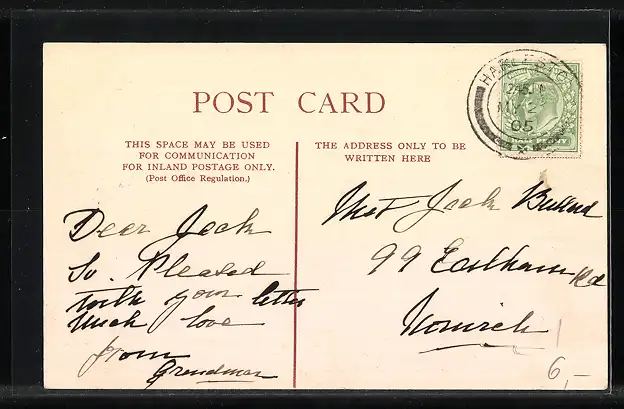 POST CARD
THIS SPACE MAY BE USED
FOR COMMUNICATION
FOR INLAND POSTAGE ONLY.
(Post Office Regulation.)
THE ADDRESS ONLY TO BE
WRITTEN HERE
05
Dear Jack
So. Pleased
with your letter
Much love
from
Grandma
Mast Jack Bullard
99 Earlham Rd
Norwich
6,-